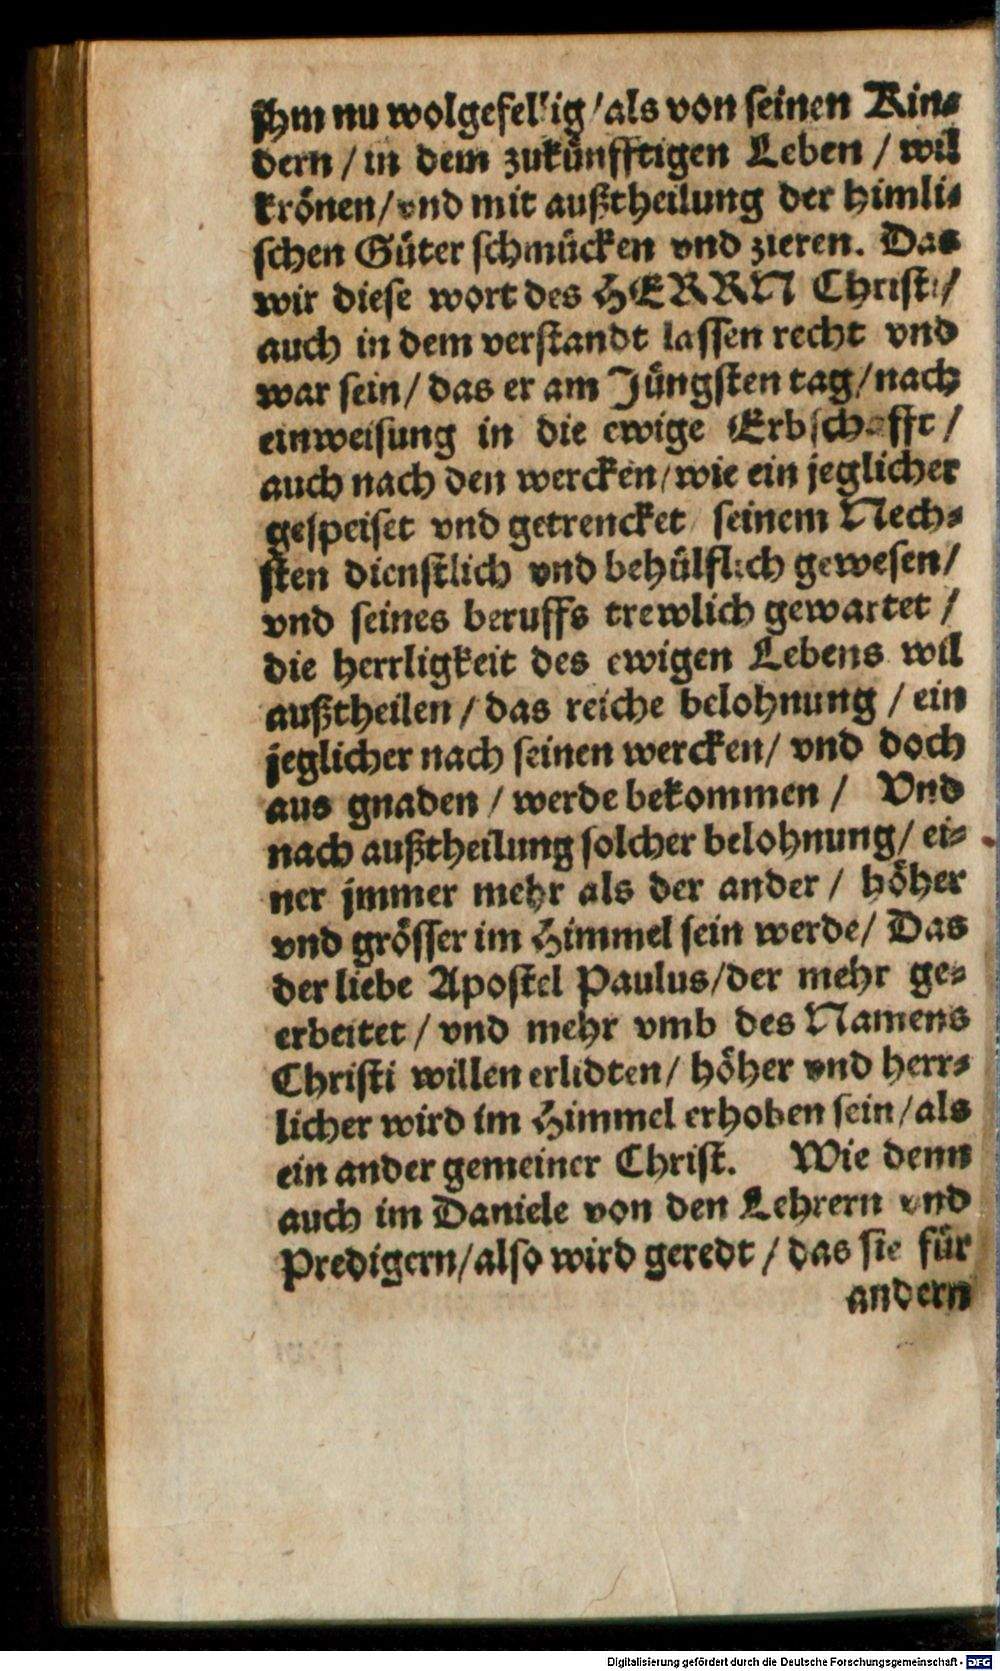 jhm nu wolgefellig / als von seinen Kin⸗
dern / in dem zukünfftigen Leben / wil
krönen / vnd mit außtheilung der himli⸗
schen Güter schmücken vnd zieren. Das
wir diese wort des HERRN Christi /
auch in dem verstandt lassen recht vnd
war sein / das er am Jüngsten tag / nach
einweisung in die ewige Erbschafft /
auch nach den wercken / wie ein jeglicher
gespeiset vnd getrencket / seinem Nech⸗
sten dienstlich vnd behülflich gewesen /
vnd seines beruffs trewlich gewartet /
die herrligkeit des ewigen Lebens wil
außtheilen / das reiche belohnung / ein
jeglicher nach seinen wercken / vnd doch
aus gnaden / werde bekommen / Vnd
nach außtheilung solcher belohnung / ei⸗
ner jmmer mehr als der ander / höher
vnd grösser im Himmel sein werde / Das
der liebe Apostel Paulus / der mehr ge⸗
erbeitet / vnd mehr vmb des Namens
Christi willen erlidten / höher vnd herr⸗
licher wird im Himmel erhoben sein / als
ein ander gemeiner Christ. Wie denn
auch im Daniele von den Lehrern vnd
Predigern / also wird geredt / das sie für
andern
Digitalisierung gefördert durch die Deutsche Forschungsgemeinschaft - DFG